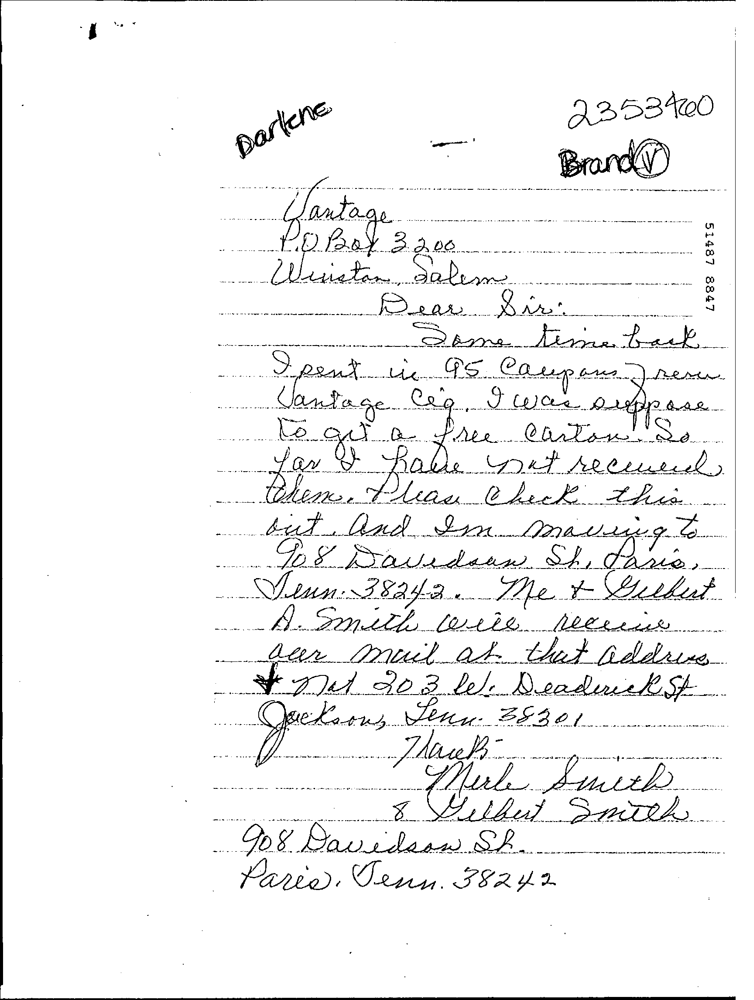 Darlene
2353460
Brand V
Vantage
P.O Box 3200
Winston, Salem
Dear Sir:
Some time back
I sent in 95 Coupons from
Vantage Cig. I was suppose
to get a free carton. So
far I have not received
them. Please Check this
out. And Im moving to
908 Davidson St, Paris,
Tenn. 38242. Me + Gilbert
A. Smith will receive
our mail at that address
+ not 203 W. Deaderick St
Jackson, Tenn. 38301
Thank
Merle Smith
& Gilbert Smith
908 Davidson St.
Paris, Tenn. 38242
51487 8847